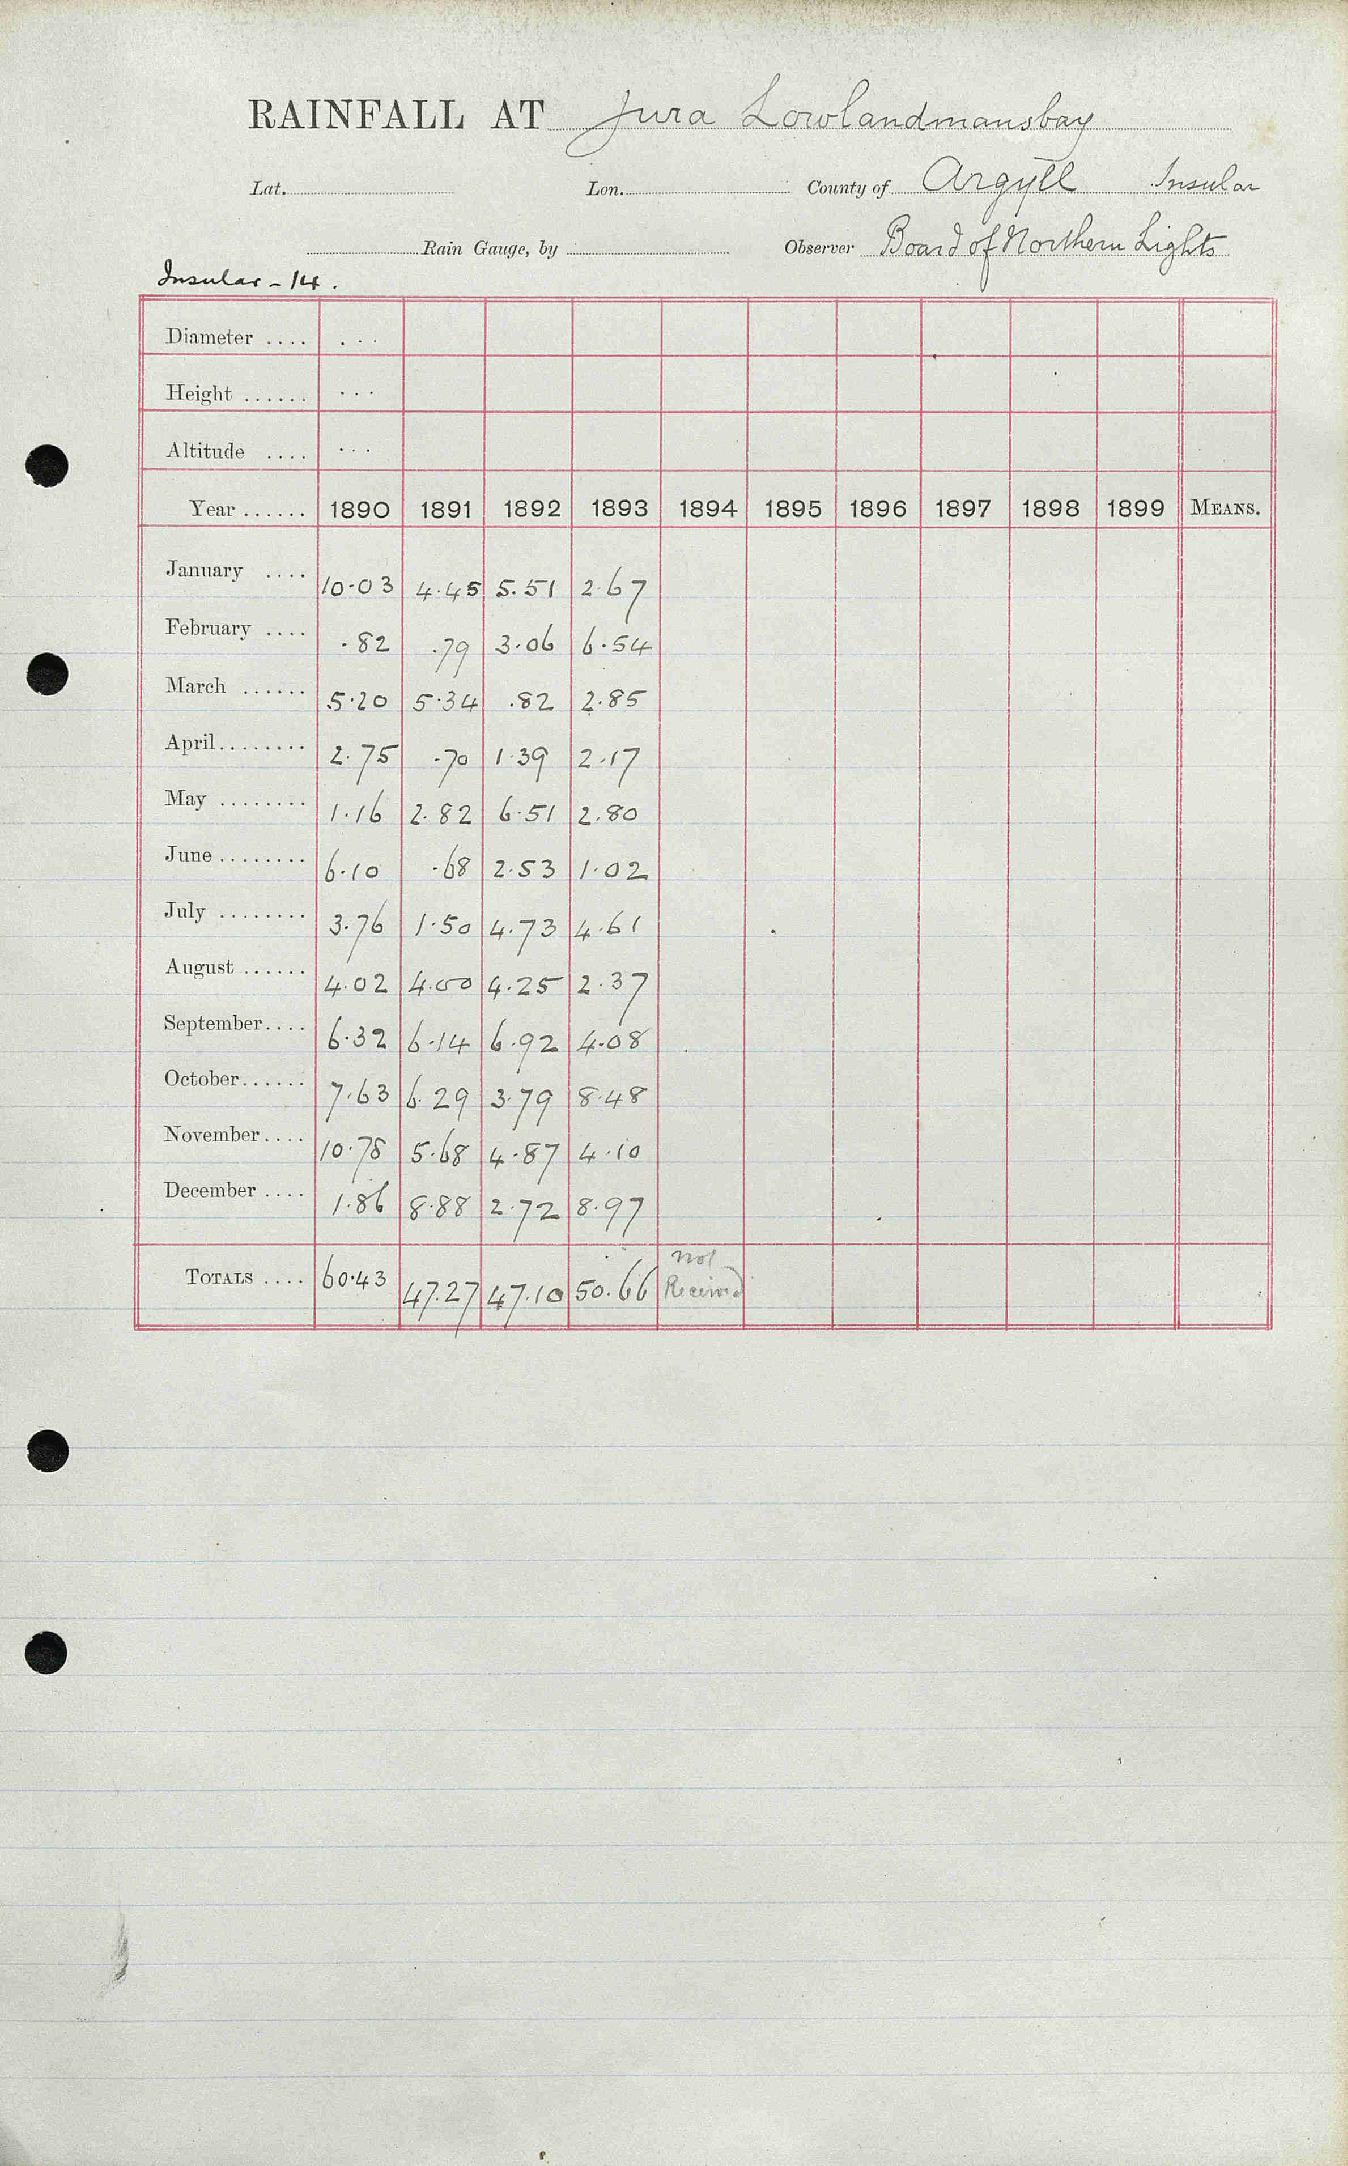 RAINFALL AT Jura Lowlandmansbay
Lat. Lon. County of Argyll Insular
Rain Gauge, by Observer Board of Northern Lights
Insular - 14.
Diameter .... ...
Height ...... ...
Altitude .... ...
Year ...... 1890 1891 1892 1893 1894 1895 1896 1897 1898 1899 MEANS.
January .... 10·03 4·45 5.51 2·67
February .... ·82 ·79 3·06 6·54
March ...... 5·20 5·34 ·82 2·85
April........ 2·75 ·70 1·39 2·17
May ........ 1·16 2·82 6·51 2·80
June ........ 6·10 ·68 2·53 1·02
July ........ 3·76 1·50 4·73 4·61
August ...... 4·02 4·00 4·25 2·37
September.... 6·32 6·14 6·92 4·08
October...... 7·63 6·29 3·79 8·48
November.... 10·78 5·68 4·87 4·10
December .... 1·86 8·88 2·72 8·97
TOTALS .... 60·43 47.27 47.10 50.66 not Received